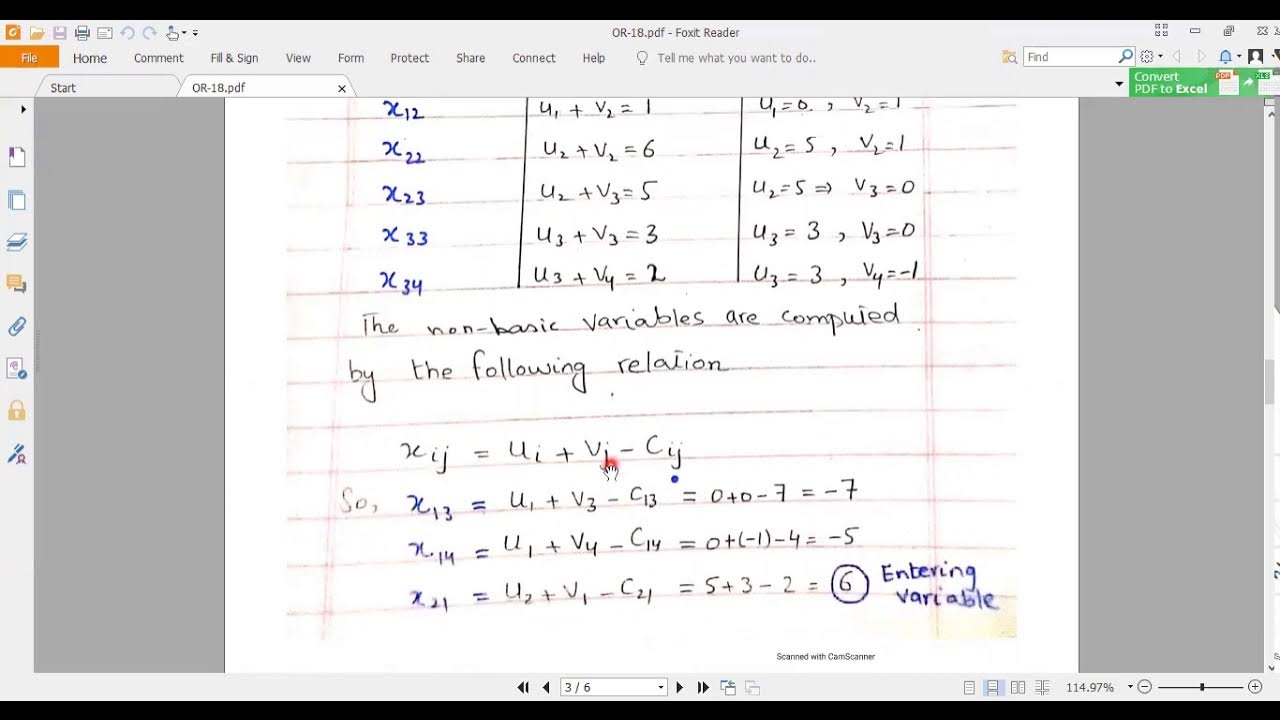 OR-18.pdf - Foxit Reader
File Home Comment Fill & Sign View Form Protect Share Connect Help Tell me what you want to do.. Find
Start OR-18.pdf × Convert PDF to Excel
x12 u1 + v2 = 1 u1=0. , v2=1
x22 u2 + v2 = 6 u2 = 5 , v2=1
x23 u2 + v3 = 5 u2=5 ⇒ v3=0
x33 u3 + v3 = 3 u3 = 3 , v3=0
x34 u3 + v4 = 2 u3 = 3 , v4=-1
The non-basic variables are computed
by the following relation
xij = ui + vj - Cij
So, x13 = u1 + v3 - C13 = 0+0-7 = -7
x14 = u1 + v4 - C14 = 0+(-1)-4= -5
x21 = u2 + v1 - C21 = 5+3-2 = 6 Entering
variable
Scanned with CamScanner
3 / 6 114.97%